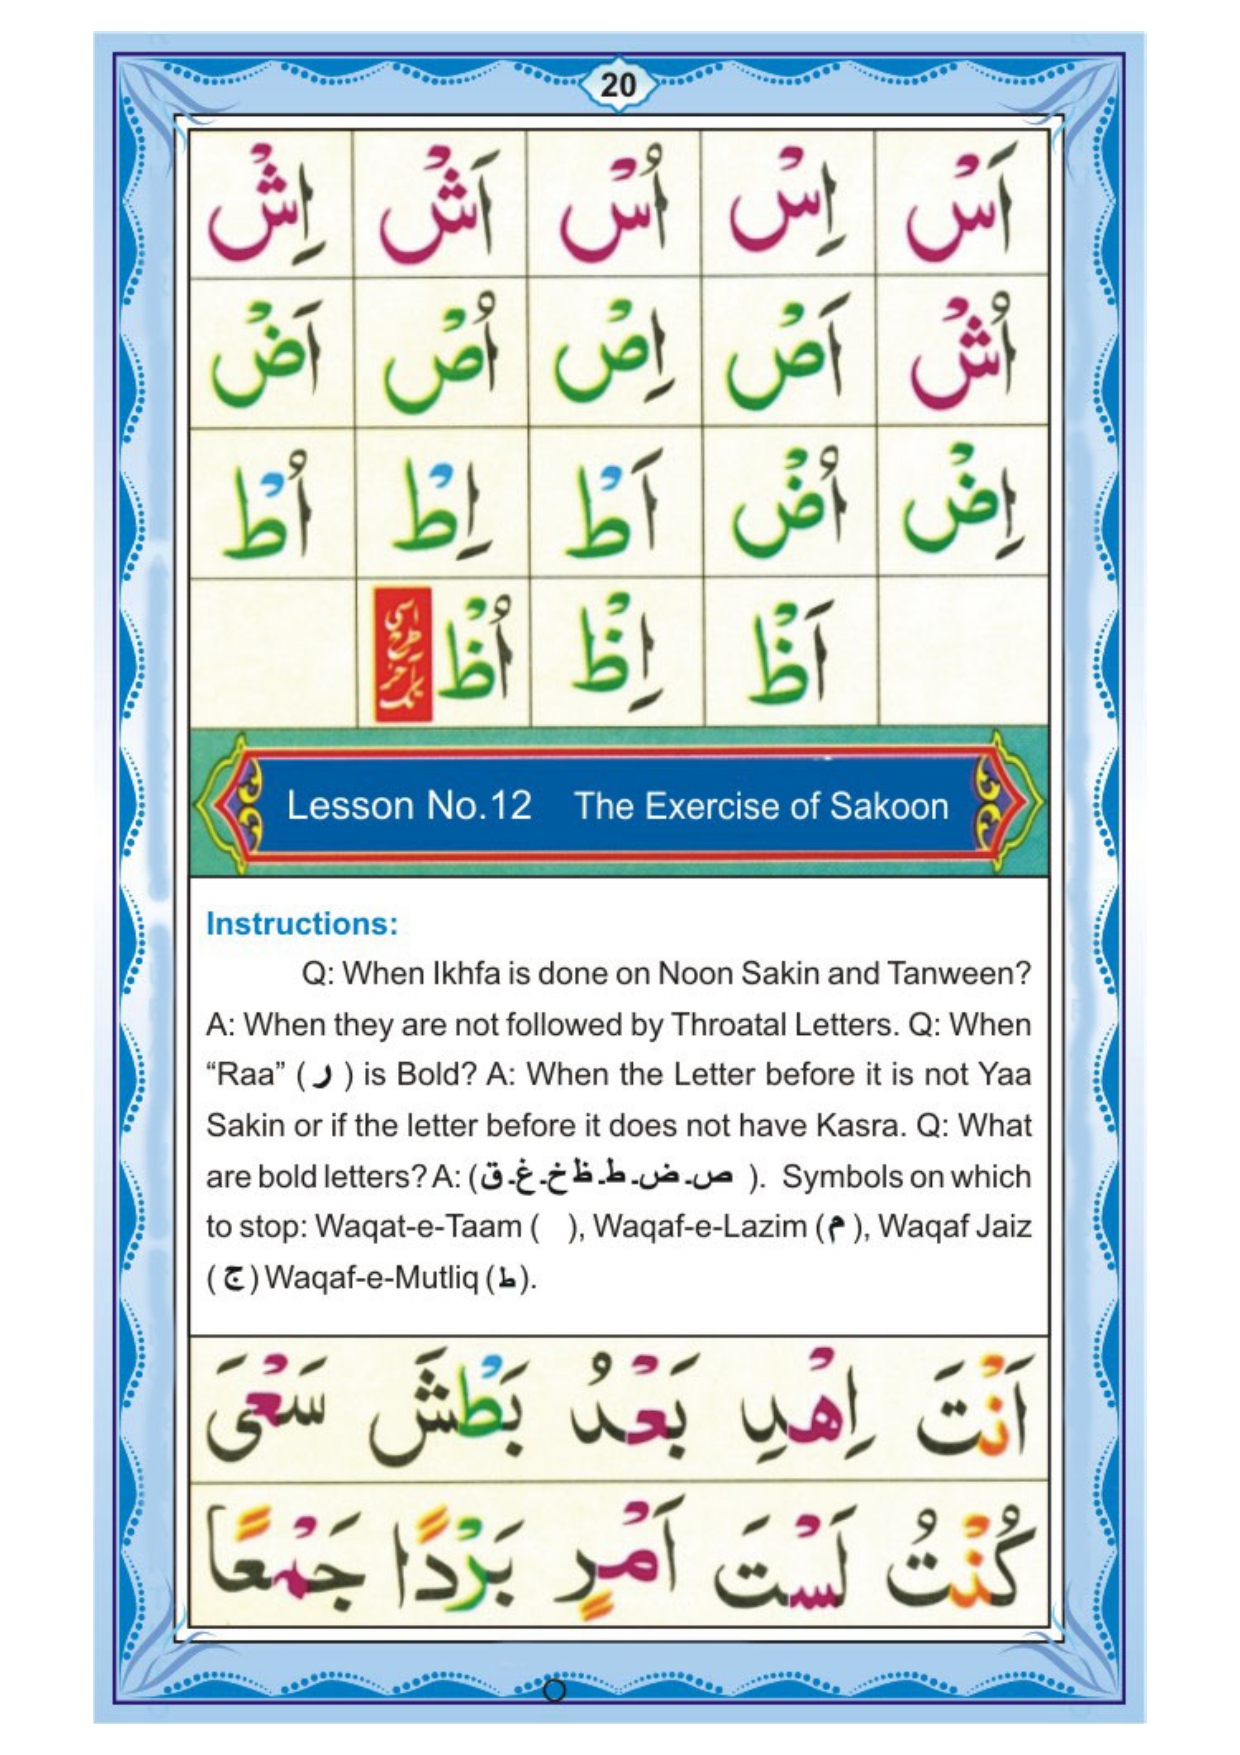 20
اَسْ اِسْ اُسْ اَشْ اِشْ
اُشْ اَصْ اِصْ اُصْ اَضْ
اِضْ اُضْ اَطْ اِطْ اُطْ
اَظْ اِظْ اُظْ
Lesson No.12 The Exercise of Sakoon
Instructions:
Q: When Ikhfa is done on Noon Sakin and Tanween?
A: When they are not followed by Throatal Letters. Q: When
“Raa” ( ر ) is Bold? A: When the Letter before it is not Yaa
Sakin or if the letter before it does not have Kasra. Q: What
are bold letters? A: (ص۔ض۔ط۔ظ خ۔غ۔ق ). Symbols on which
to stop: Waqat-e-Taam ( ), Waqaf-e-Lazim (م ), Waqaf Jaiz
( ج) Waqaf-e-Mutliq (ط).
اَنْتَ اِهْدِ بَعْدُ بَطْشَ سَعْىَ
كُنْتُ لَسْتَ اَمْرٍ بَرْدًا جَمْعًا